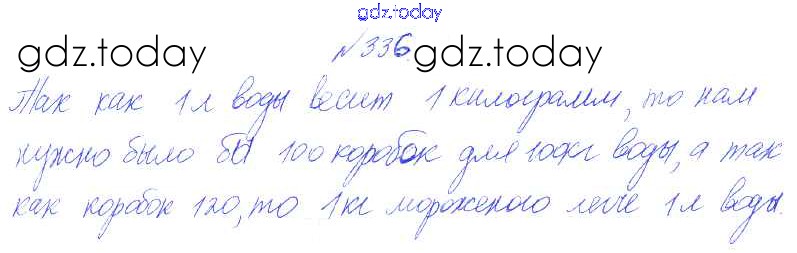 gdz.today
gdz.today №336 gdz.today
Так как 1л воды весит 1 килограмм, то нам
нужно было бы 100 коробок для 100кг воды, а так
как коробок 120, то 1кг мороженого легче 1л воды.